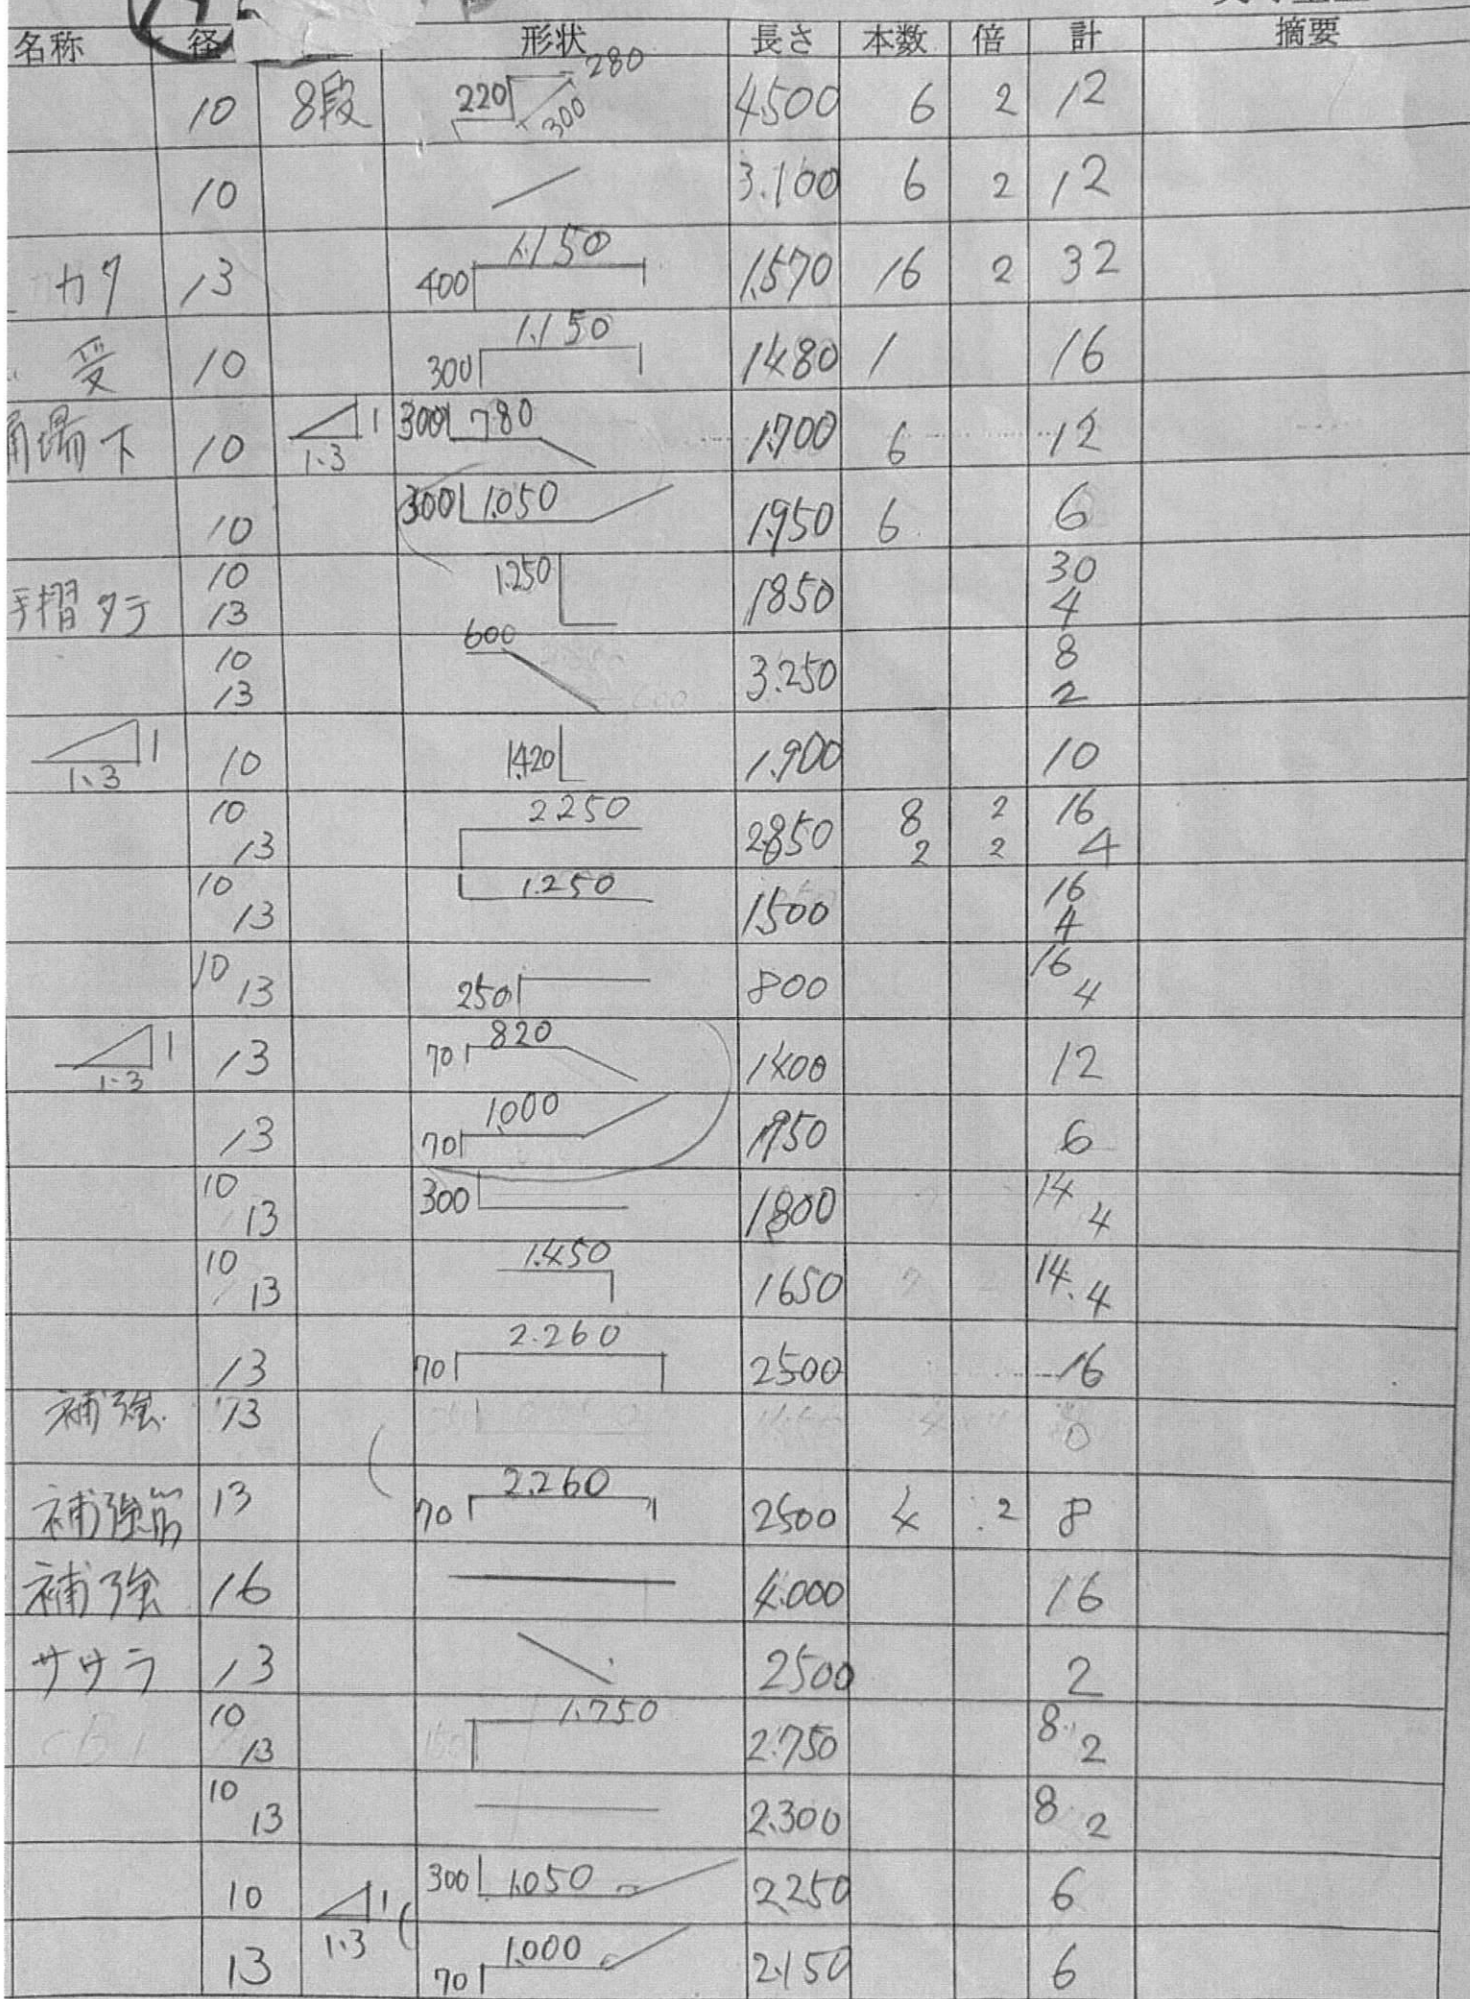 名称 径 形状 長さ 本数 倍 計 摘要
10 8段 220 300 280 4500 6 2 12
10 3.100 6 2 12
カタ 13 400 1.150 1.570 16 2 32
受 10 300 1.150 1480 1 16
踊場下 10 1.3 1 300 780 1.700 6 12
10 300 1.050 1.950 6 6
手摺タテ 10 13 1.250 1850 30 4
10 13 600 3.250 8 2
1.3 1 10 1420 1.900 10
10 13 2250 2850 8 2 2 2 16 4
10 13 1.250 1.500 16 4
10 13 250 800 16 4
1.3 1 13 70 820 1400 12
13 70 1.000 1950 6
10 13 300 1.800 14 4
10 13 1.450 1650 14.4
13 70 2.260 2500 16
補強 13
補強筋 13 70 2.260 2500 4 2 8
補強 16 4.000 16
ササラ 13 2500 2
10 13 1.750 2.750 8 2
10 13 2.300 8 2
10 1.3 1 300 1.050 2.250 6
13 70 1.000 2.150 6